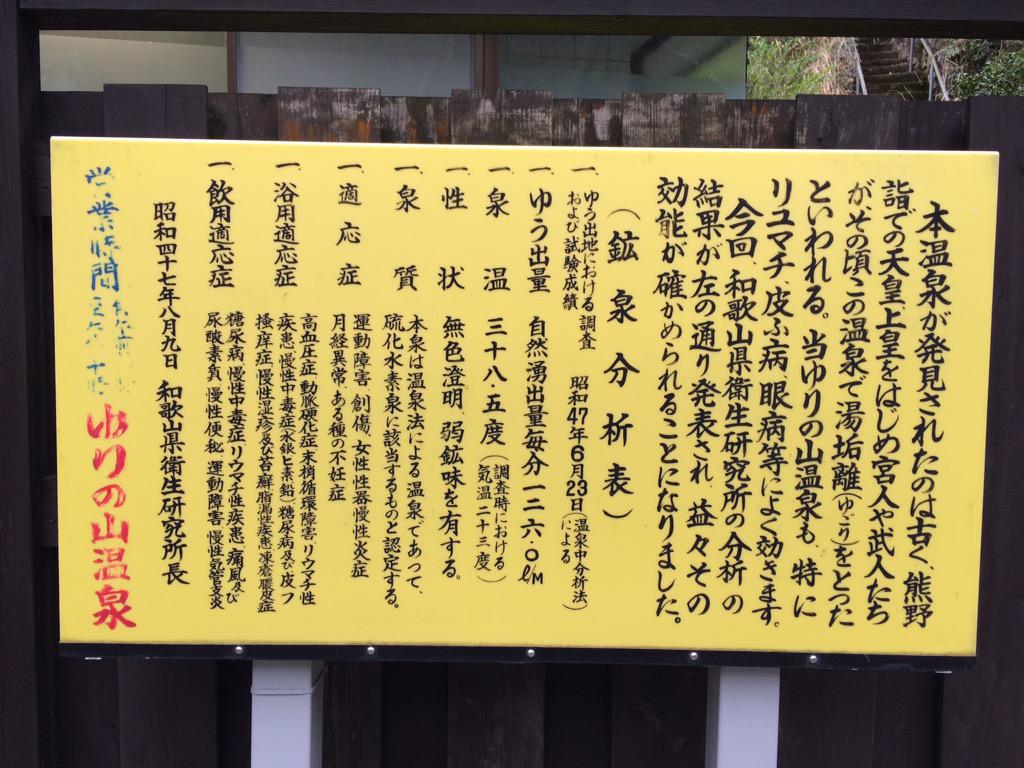 本温泉が発見されたのは古く、熊野
詣での天皇上皇をはじめ宮人や武人たち
が、その頃この温泉で湯垢離(ゆごり)をとった
といわれる。当ゆりの山温泉も、特に
リユマチ、皮ふ病、眼病等によく効きます。
今回、和歌山県衛生研究所の分析の
結果が左の通り発表され、益々その
効能が確かめられることになりました。
(鉱泉分析表)
一、ゆう出地における調査
および試験成績 昭和47年6月23日(温泉中分析法)
による
一、ゆう出量 自然湧出量毎分一二六・〇ℓ/M
一、泉温 三十八・五度(調査時における
気温二十三度)
一、性状 無色澄明、弱鉱味を有する。
一、泉質 本泉は温泉法による温泉であって、
硫化水素泉に該当するものと認定する。
一、適応症 運動障害、創傷、女性性器慢性炎症
月経異常、ある種の不妊症
一、浴用適応症 高血圧症、動脈硬化症、末梢循環障害、リウマチ性
疾患、慢性中毒症(水銀と素鉛)糖尿病及び皮フ
掻痒症、慢性湿疹及び苔癬、脂漏性疾患、凍瘡、膿皮症
一、飲用適応症 糖尿病、慢性中毒症、リウマチ性疾患、痛風及び
尿酸素質、慢性便秘、運動障害、慢性気管支炎
昭和四十七年八月九日 和歌山県衛生研究所長
営業時間
ゆりの山温泉